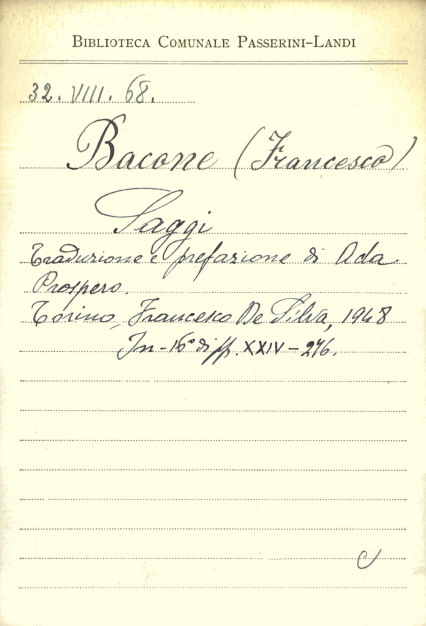 BIBLIOTECA COMUNALE PASSERINI-LANDI
32. VIII. 68.
Bacone (Francesco)
Saggi
Traduzione e prefazione di Ada
Prospero.
Torino, Francesco De Silva, 1948
In-16° di pp. XXIV-276.
C